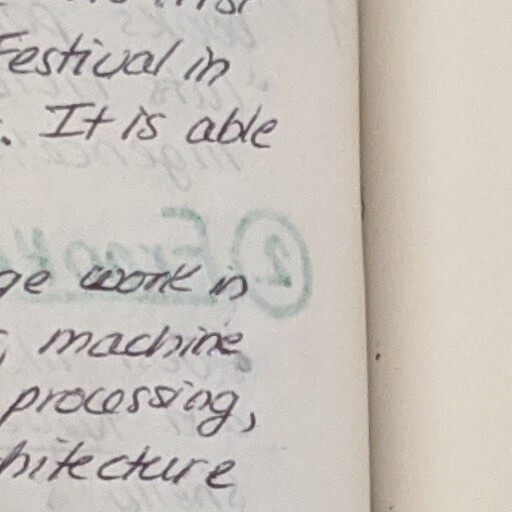 Festival in
. It is able
ge work in
, machine
processing,
hitecture